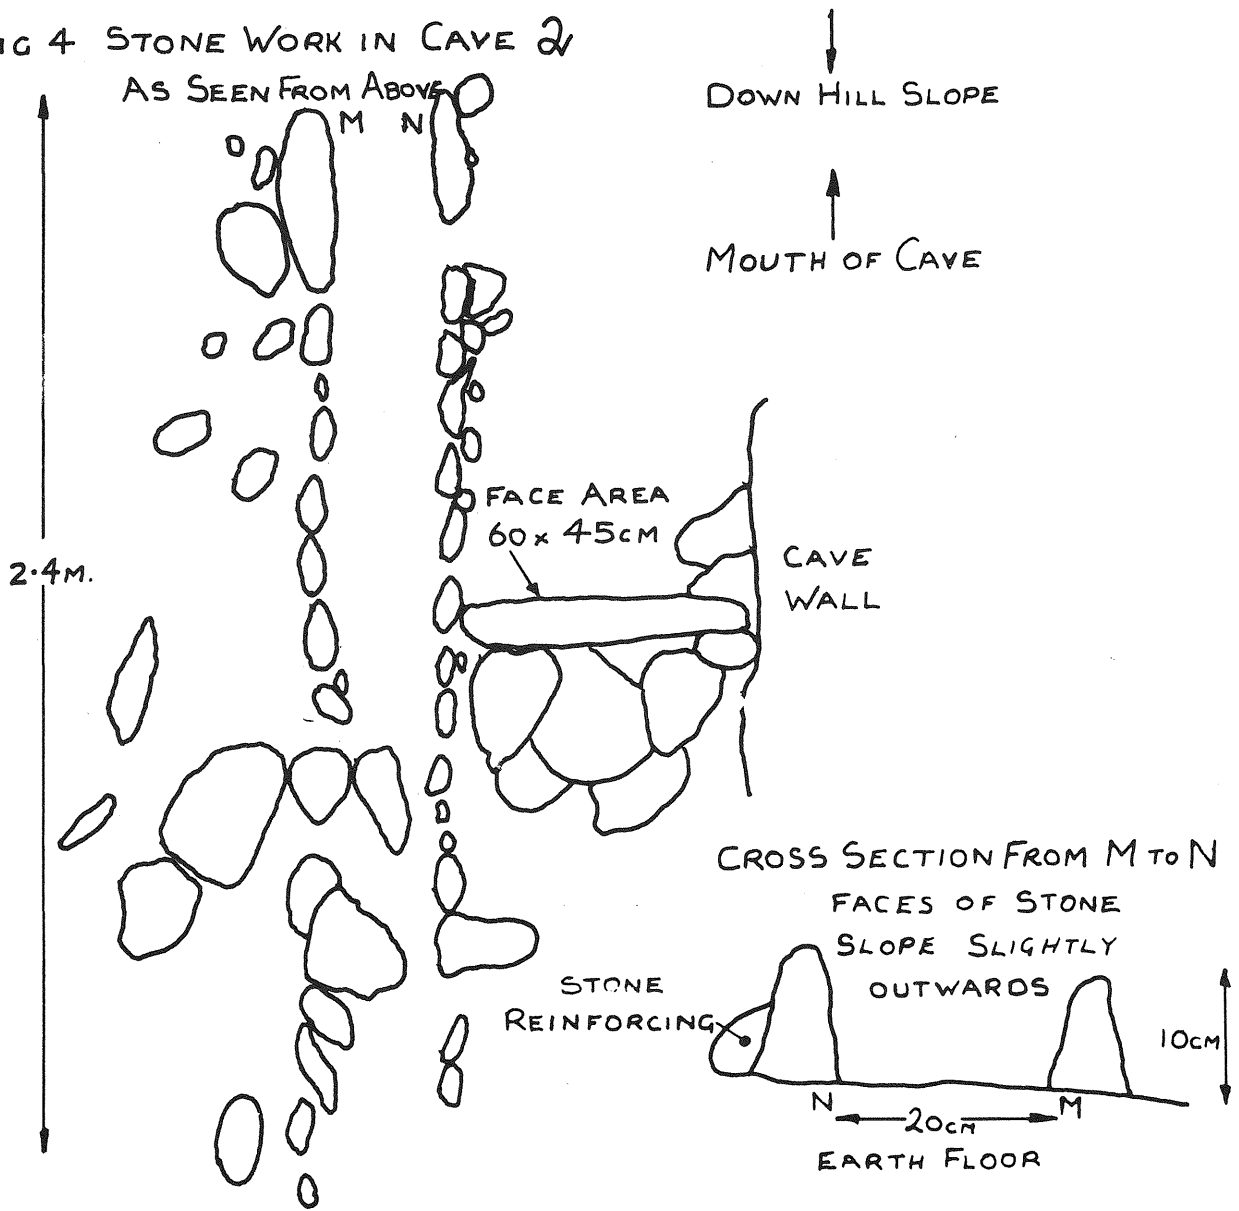 IG 4 STONE WORK IN CAVE 2
AS SEEN FROM ABOVE
M N
DOWN HILL SLOPE
MOUTH OF CAVE
FACE AREA
60 x 45CM
CAVE
WALL
2.4M.
CROSS SECTION FROM M TO N
FACES OF STONE
SLOPE SLIGHTLY
OUTWARDS
STONE
REINFORCING
10CM
N M
20CM
EARTH FLOOR